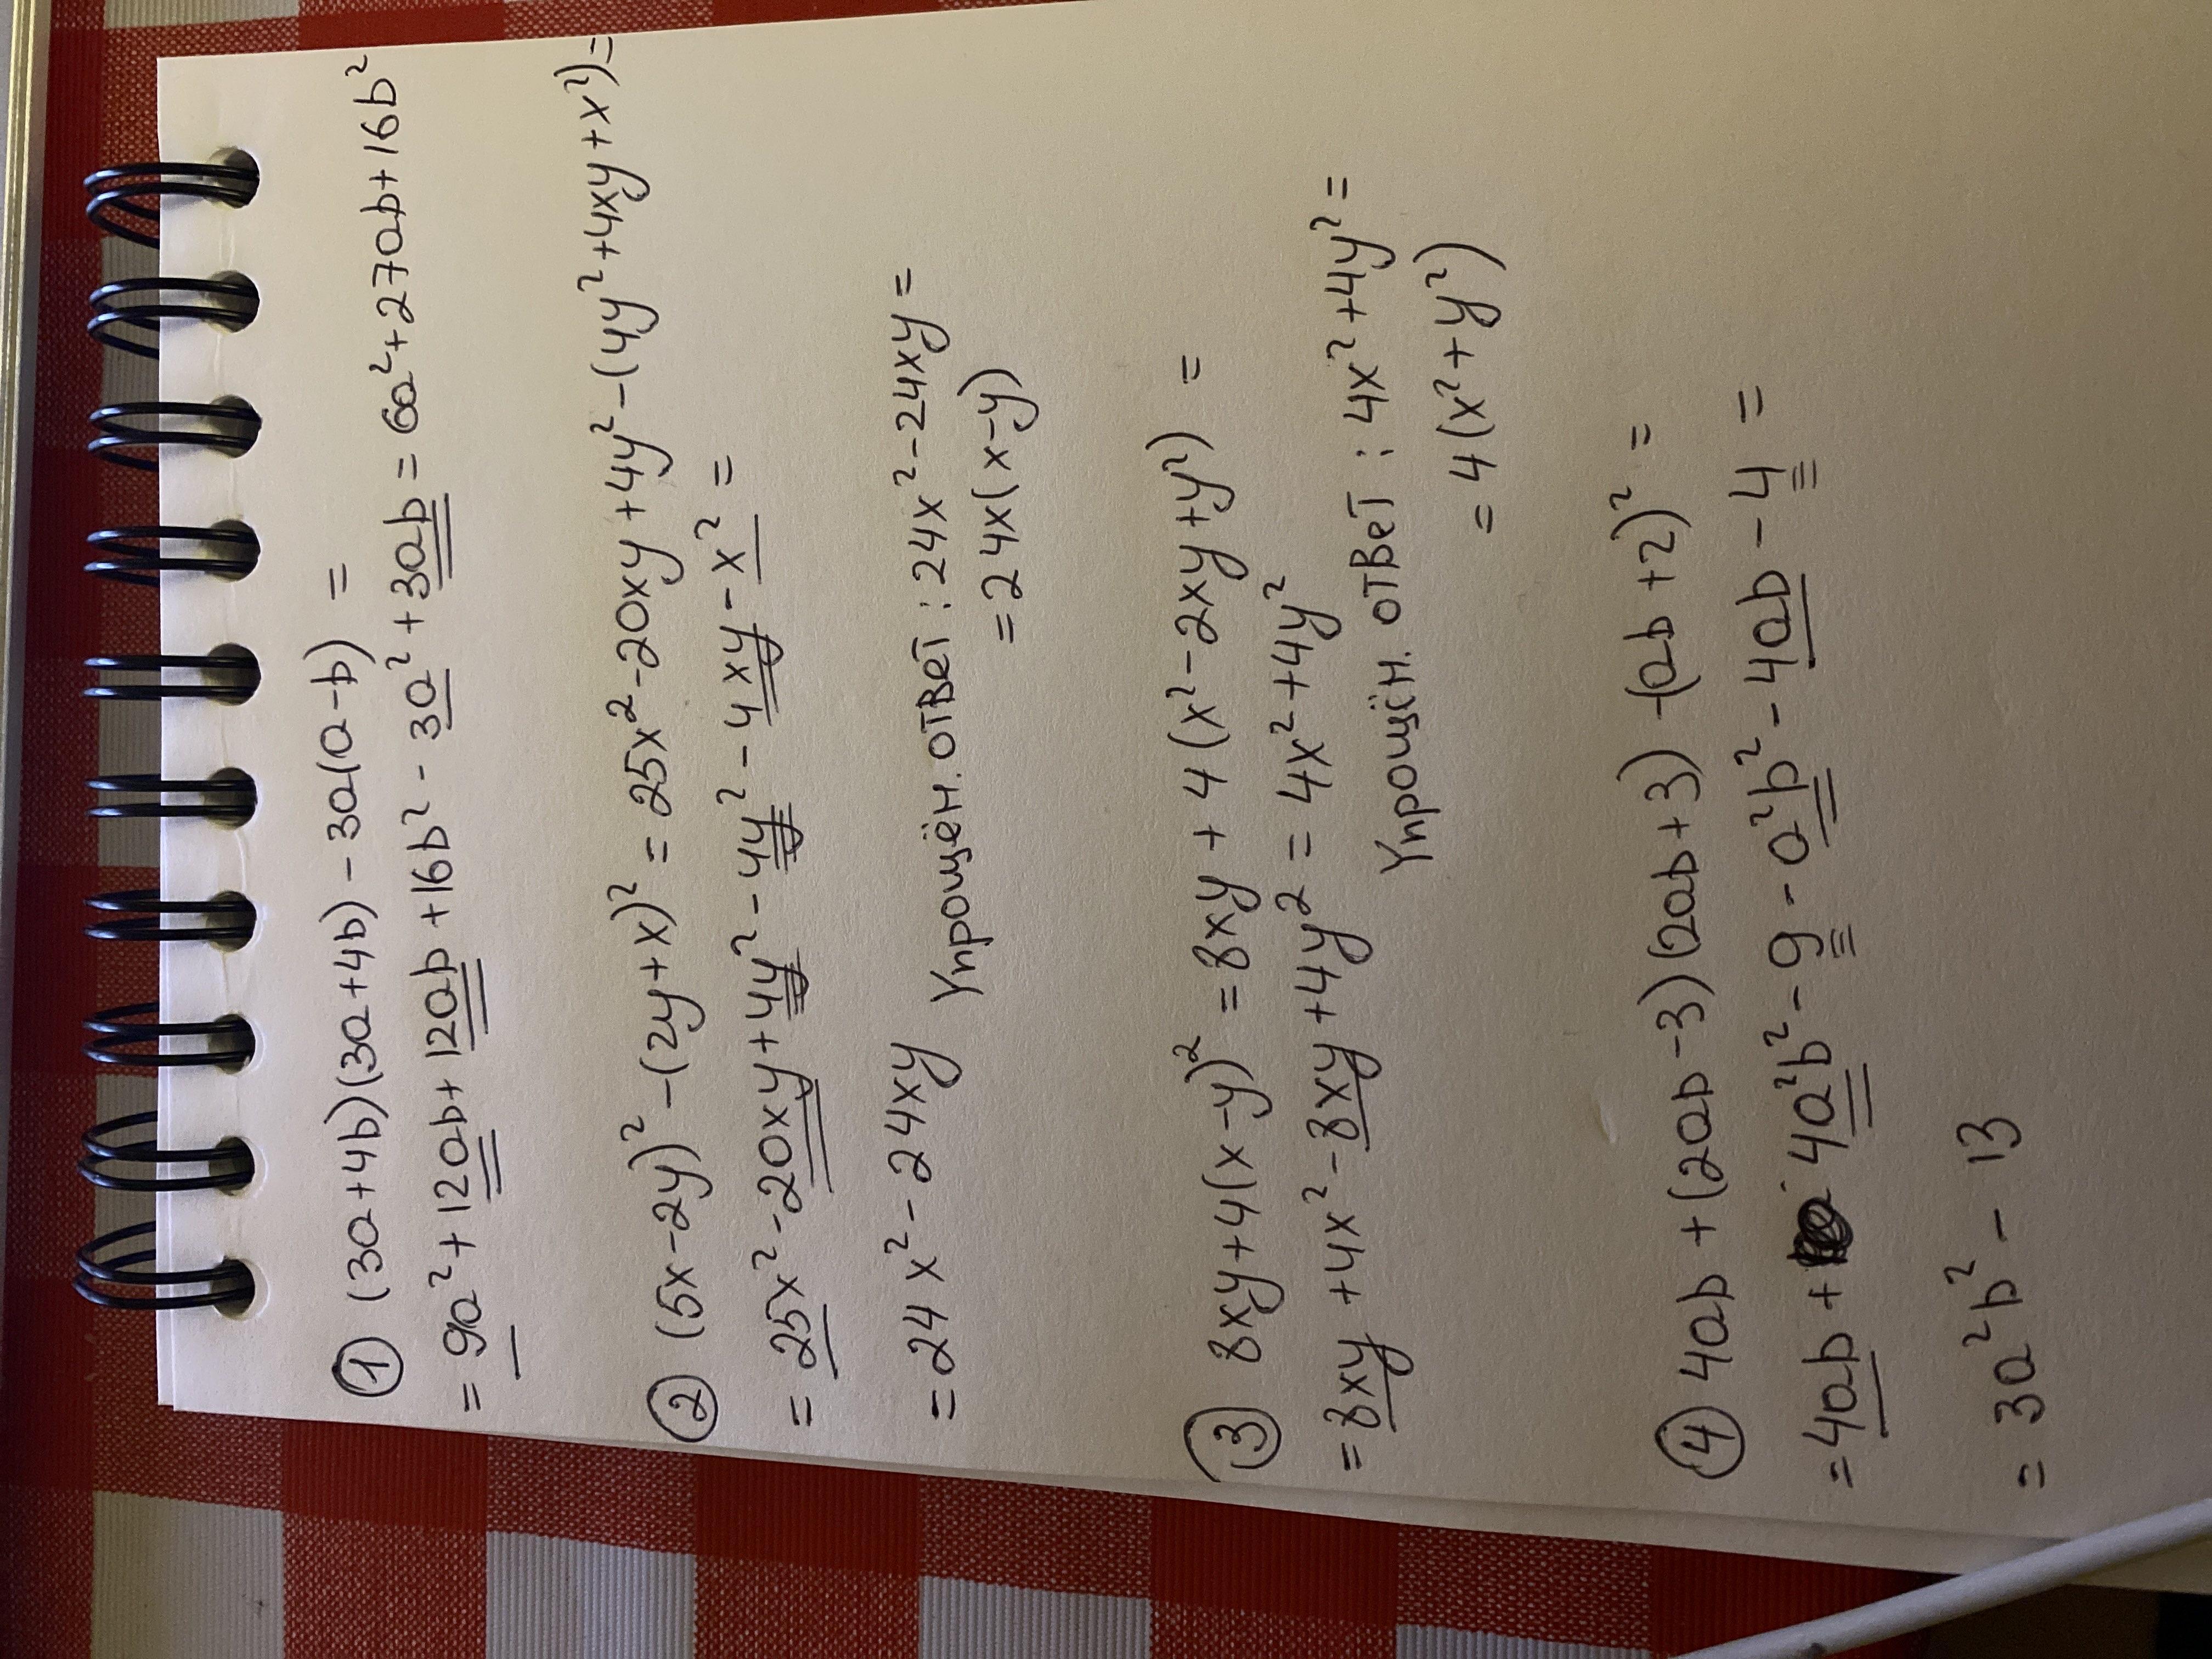 ① (3a+4b)(3a+4b) - 3a(a-b) =
= 9a² + 12ab + 12ab + 16b² - 3a² + 3ab = 6a² + 27ab + 16b²
② (5x-2y)² - (2y+x)² = 25x² - 20xy + 4y² - (4y² + 4xy + x²) =
= 25x² - 20xy + 4y² - 4y² - 4xy - x² =
= 24x² - 24xy Упрощён. ответ: 24x² - 24xy =
= 24x(x-y)
③ 8xy + 4(x-y)² = 8xy + 4(x² - 2xy + y²) =
= 8xy + 4x² - 8xy + 4y² = 4x² + 4y²
Упрощён. ответ: 4x² + 4y² =
= 4(x² + y²)
④ 4ab + (2ab-3)(2ab+3) - (ab+2)² =
= 4ab + 4a²b² - 9 - a²b² - 4ab - 4 =
= 3a²b² - 13